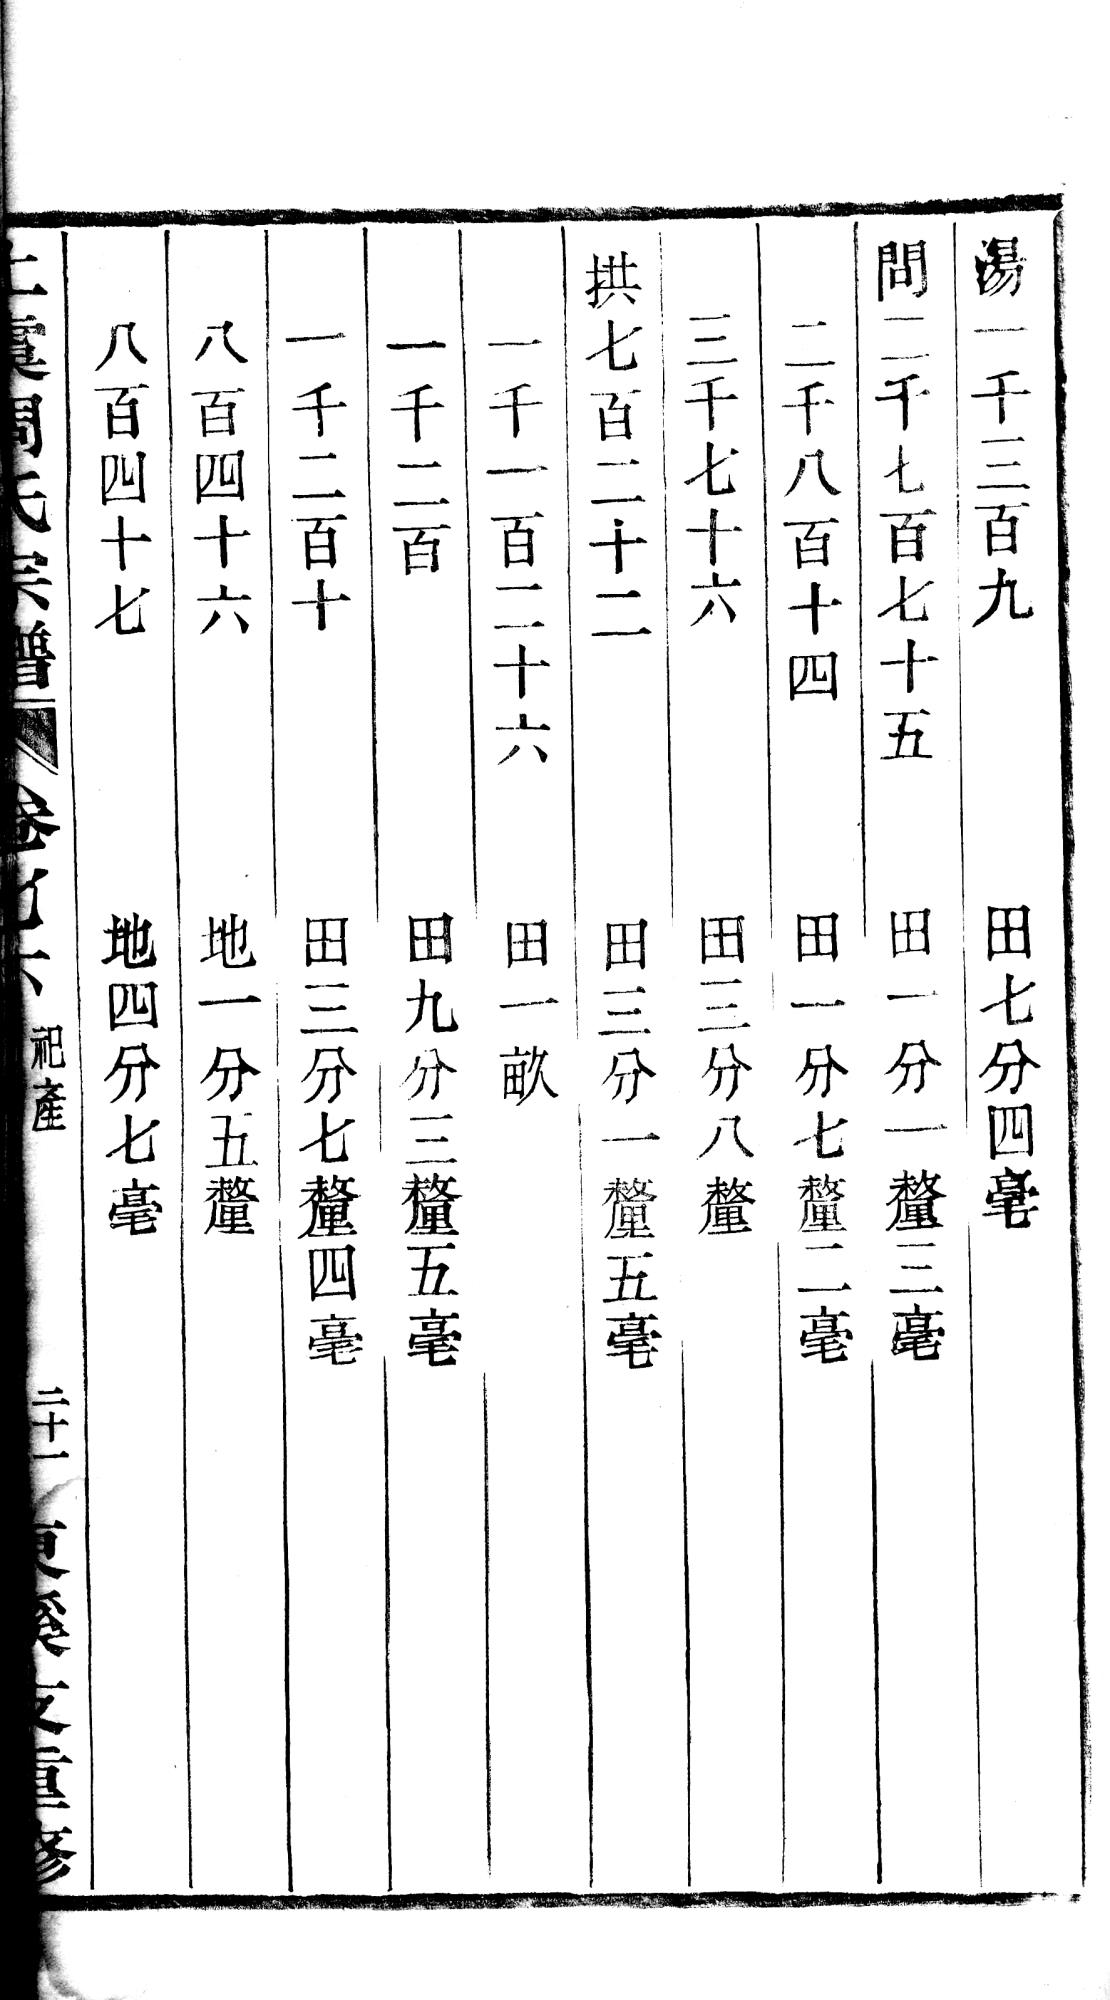 湯一千三百九　田七分四毫
問二千七百七十五　田一分一釐三毫
二千八百十四　田一分七釐二毫
三千七十六　田三分八釐
拱七百二十二　田三分一釐五毫
一千一百二十六　田一畝
一千二百　田九分三釐五毫
一千二百十　田三分七釐四毫
八百四十六　地一分五釐
八百四十七　地四分七毫
上虞周氏宗譜　卷七六　祀產　二十一　支重修